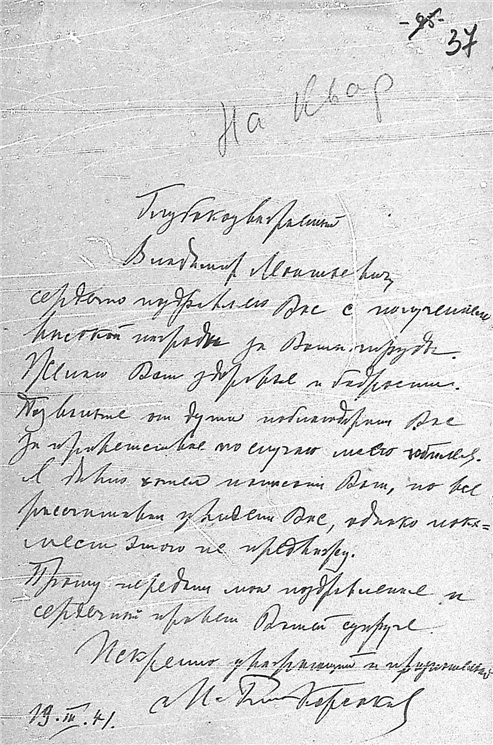 37
На Квар
Глубокоуважаемый
Владимир
сердечно поздравляю Вас с получением
высокой награды за Ваши труды.
Желаю Вам здоровья и бодрости.
Позвольте от души поблагодарить Вас
за приветствие по случаю моего юбилея.
Я давно хотел написать Вам, но все
рассчитывал увидеть Вас, однако пока-
мест этого не предвижу.
Прошу передать мои поздравление и
сердечный привет Вашей супруге.
Искренно уважающий и
19.III.41.